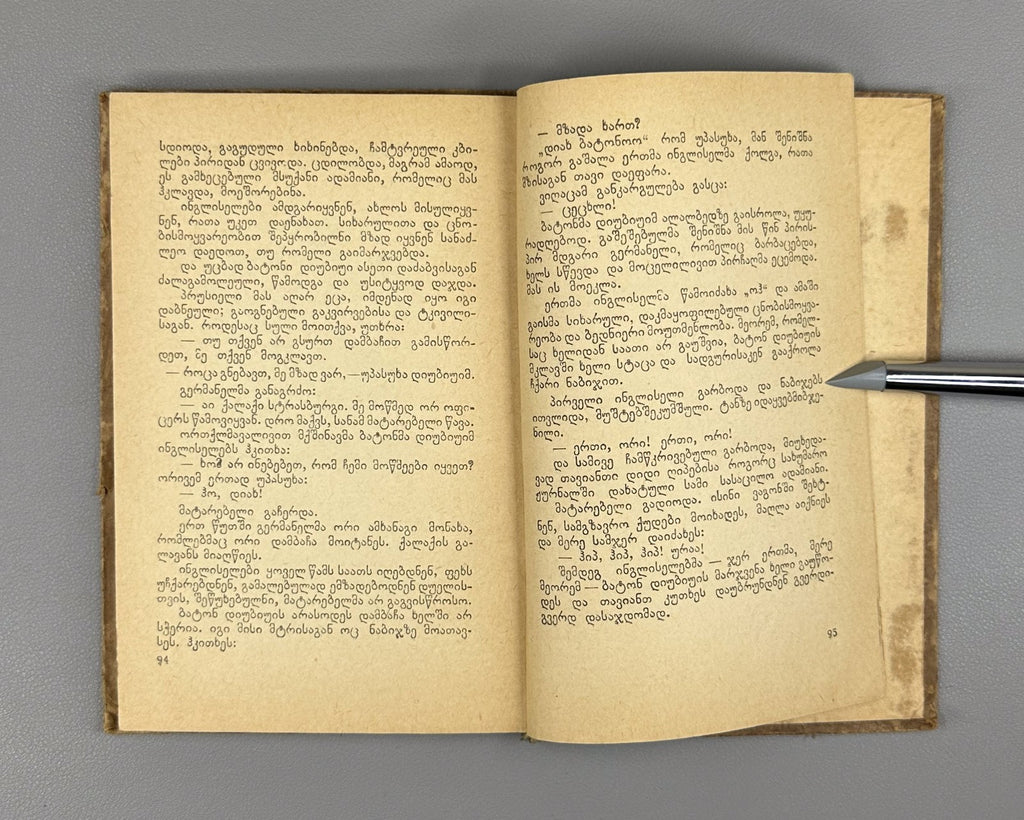 სდიოდა, გაგუდული ხიხინებდა, ჩამტვრეული კბი-
ლები პირიდან ცვივოდა. ცდილობდა, მაგრამ ამაოდ,
ეს გამხეცებული მსუქანი ადამიანი, რომელიც მას
ჰკლავდა, მოეშორებინა.
ინგლისელები ამდგარიყვნენ, ახლოს მისულიყვ-
ნენ, რათა უკეთ დაენახათ. სიხარულითა და ცნო-
ბისმოყვარეობით შეპყრობილნი მზად იყვნენ სანაძ-
ლეო დაედოთ, თუ რომელი გაიმარჯვებდა.
და უცბად ბატონი დიუბიუი ასეთი დაძაბვისაგან
ძალაგამოლეული, წამოდგა და უსიტყვოდ დაჯდა.
პრუსიელი მას აღარ ეცა, იმდენად იყო იგი
დაბნეული; გაოგნებული გაკვირვებისა და ტკივილი-
საგან. როდესაც სული მოითქვა, უთხრა:
— თუ თქვენ არ გსურთ დამბაჩით გამისწორ-
დეთ, მე თქვენ მოგკლავთ.
— როცა გნებავთ, მე მზად ვარ, — უპასუხა დიუბიუიმ.
გერმანელმა განაგრძო:
— აი ქალაქი სტრასბურგი. მე მოწმედ ორ ოფი-
ცერს წამოვიყვან. დრო მაქვს, სანამ მატარებელი წავა.
ორთქლმავალივით მქშინავმა ბატონმა დიუბიუიმ
ინგლისელებს ჰკითხა:
— ხომ არ ინებებეთ, რომ ჩემი მოწმეები იყვეთ?
ორივემ ერთად უპასუხა:
— ჰო, დიახ!
მატარებელი გაჩერდა.
ერთ წუთში გერმანელმა ორი ამხანაგი მონახა,
რომლებმაც ორი დამბაჩა მოიტანეს. ქალაქის გა-
ლავანს მიაღწიეს.
ინგლისელები ყოველ წამს საათს იღებდნენ, ფეხს
უჩქარებდნენ, გამალებულად ემზადებოდნენ დუელის-
თვის, შეწუხებულნი, მატარებელმა არ გაგვისწროსო.
ბატონ დიუბიუის არასოდეს დამბაჩა ხელში არ
სჭერია. იგი მისი მტრისაგან ოც ნაბიჯზე მოათავ-
სეს. ჰკითხეს:
94
— მზადა ხართ?
„დიახ ბატონოო“ რომ უპასუხა, მან შენიშნა
როგორ გაშალა ერთმა ინგლისელმა ქოლგა, რათა
მზისაგან თავი დაეფარა.
ვიღაცამ განკარგულება გასცა:
— ცეცხლი!
ბატონმა დიუბიუიმ ალალბედზე გაისროლა, უყუ-
რადღებოდ. გაშეშებულმა შენიშნა მის წინ პირის-
პირ მდგარი გერმანელი, რომელიც ბარბაცებდა,
ხელს სწევდა და მოცელილივით პირჩაღმა ეცემოდა.
მას ის მოეკლა.
ერთმა ინგლისელმა წამოიძახა „ოჰ“ და ამაში
გაისმა სიხარული, დაკმაყოფილებული ცნობისმოყვა-
რეობა და ბედნიერი მოუთმენლობა. მეორემ, რომელ-
საც ხელიდან საათი არ გაუშვია, ბატონ დიუბიუის
მკლავში ხელი სტაცა და სადგურისაკენ გააქროლა
ჩქარი ნაბიჯით.
პირველი ინგლისელი გარბოდა და ნაბიჯებს
ითვლიდა, მუშტებშეკუმშული. ტანზე იდაყვებმიბჯე-
ნილი.
— ერთი, ორი! ერთი, ორი!
და სამივე ჩამწკრივებული გარბოდა, მიუხედა-
ვად თავიანთი დიდი ღიპებისა როგორც სახუმარო
ჟურნალში დახატული სამი სასაცილო ადამიანი.
მატარებელი გადიოდა. ისინი ვაგონში შეხტ-
ნენ, სამგზავრო ქუდები მოიხადეს, მაღლა აიქნიეს
და მერე სამჯერ დაიძახეს:
— ჰიპ, ჰიპ, ჰიპ! ურაა!
შემდეგ ინგლისელებმა — ჯერ ერთმა, მერე
მეორემ — ბატონ დიუბიუის მარჯვენა ხელი გაუწო-
დეს და თავიანთ კუთხეს დაუბრუნდნენ გვერდი-
გვერდ დასაჯდომად.
95